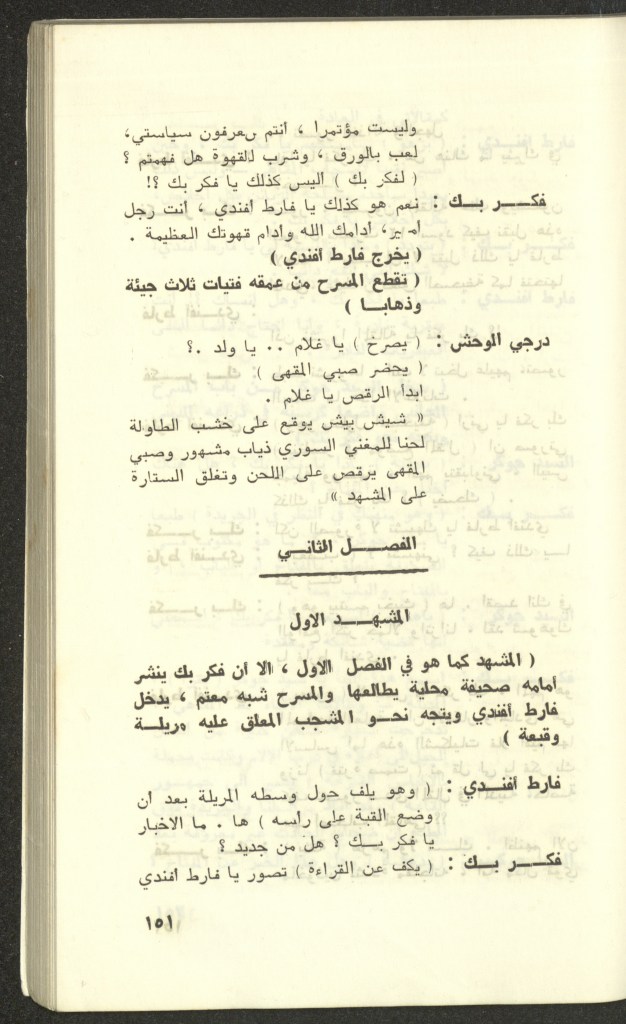 وليست مؤتمرا ، انتم تعرفون سياستي،
لعب بالورق ، وشرب للقهوة هل فهمتم ؟
( لفكر بك ) اليس كذلك يا فكر بك ؟!
فكـــر بــك : نعم هو كذلك يا فارط افندي ، انت رجل
امير، ادامك الله وادام قهوتك العظيمة .
( يخرج فارط أفندي )
( تقطع المسرح من عمقه فتيات ثلاث جيئة
وذهابـا )
درجي الوحش : ( يصرخ ) يا غلام .. يا ولد .؟
( يحضر صبي المقهى )
ابدأ الرقص يا غلام .
« شيش بيش يوقع على خشب الطاولة
لحنا للمغني السوري ذياب مشهور وصبي
المقهى يرقص على اللحن وتغلق الستارة
على المشهد »
الفصـــل الثانـي
المشهــد الاول
( المشهد كما هو في الفصل الاول ، الا أن فكر بك ينشر
أمامه صحيفة محلية يطالعها والمسرح شبه معتم ، يدخل
فارط أفندي ويتجه نحــو المشجب المعلق عليه مريلــة
وقبعة )
فارط أفنـدي : ( وهو يلف حول وسطه المريلة بعد أن
وضع القبة على رأسه ) ها . ما الاخبار
يا فكر بــك ؟ هل من جديد ؟
فكـــر بــك : ( يكف عن القراءة ) تصور يا فارط افندي
١٥١